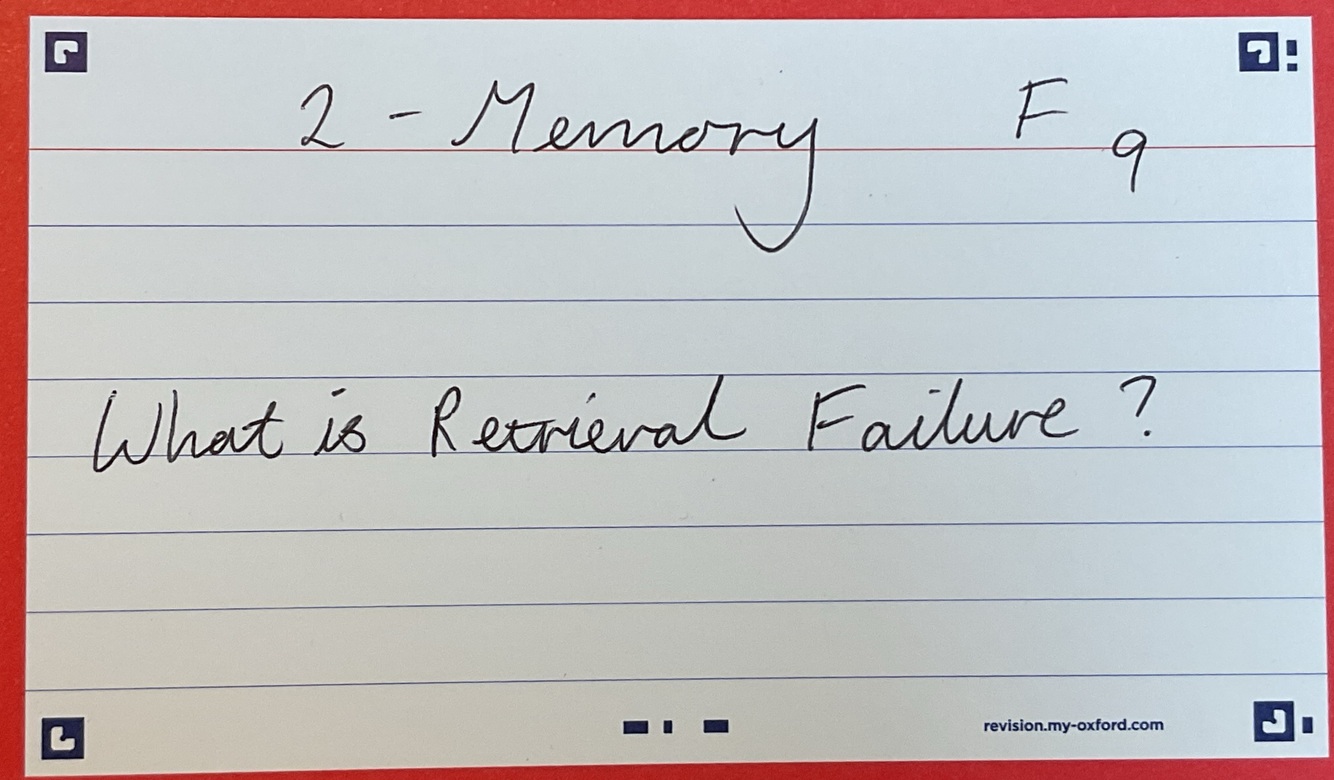 2 - Memory F 9
What is Retrieval Failure ?
revision.my-oxford.com